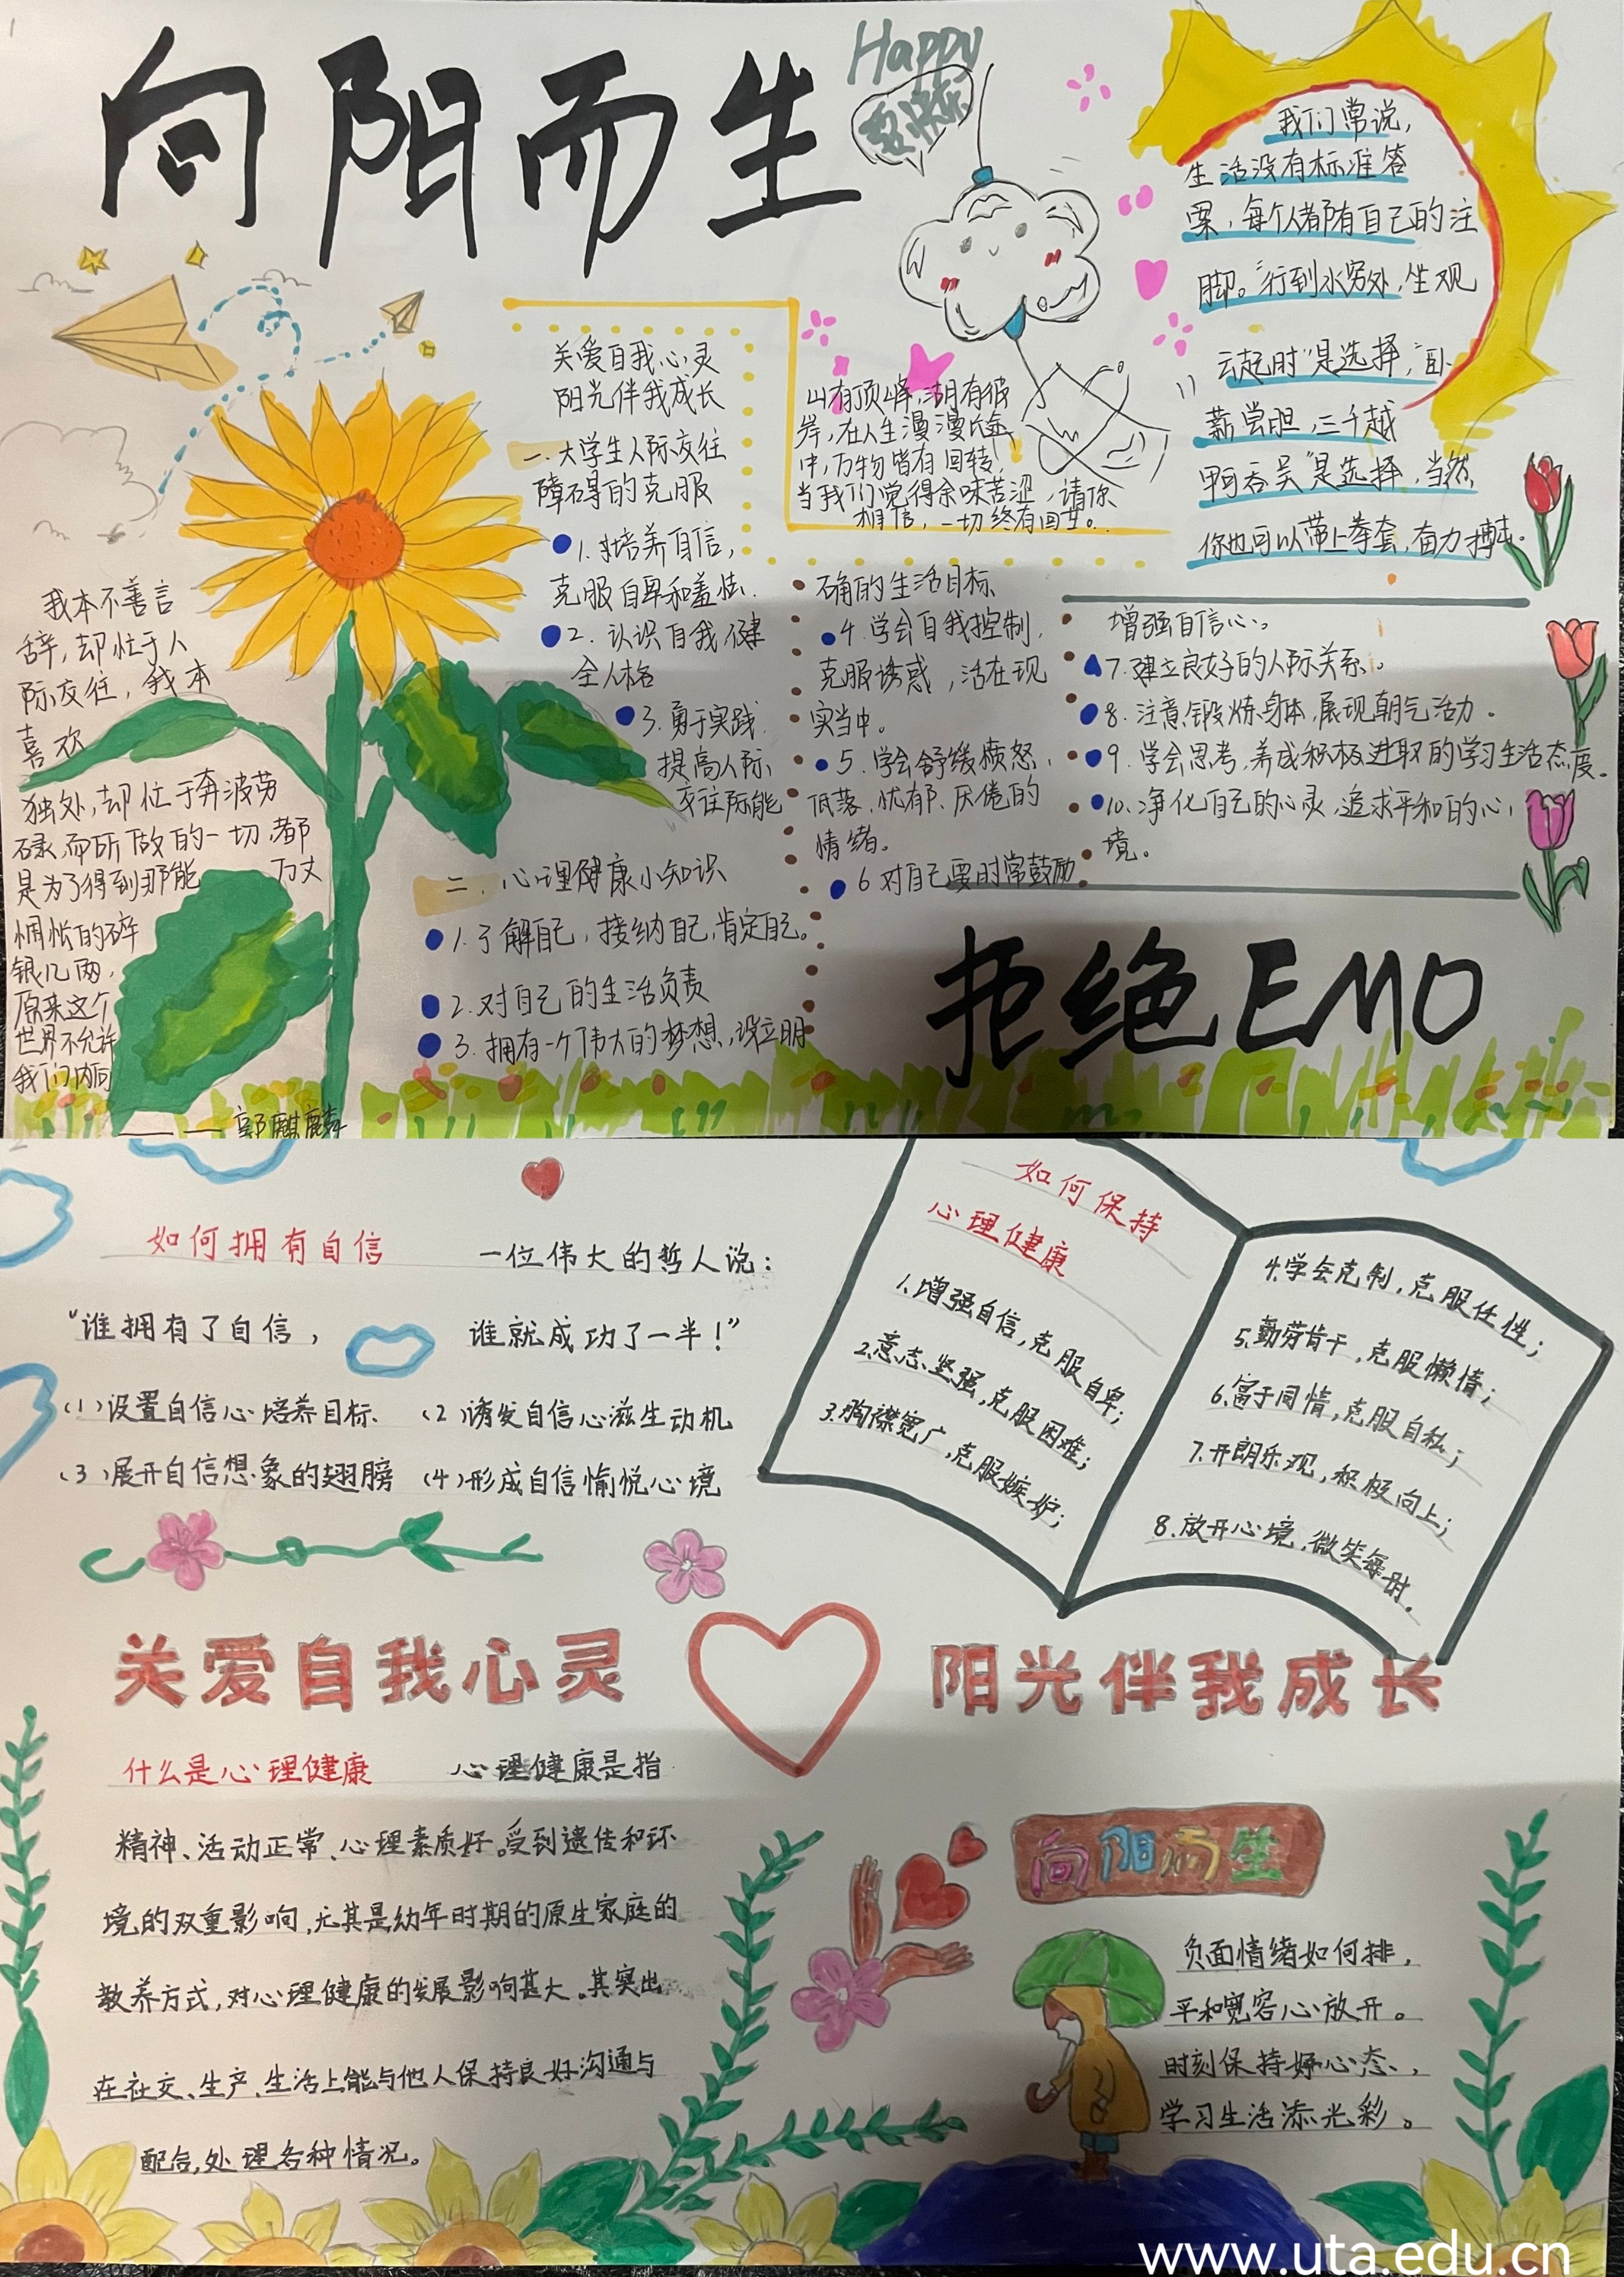 向阳而生
Happy
要快乐
我们常说，
生活没有标准答
案，每个人都有自己的注
脚。“行到水穷处，坐观
云起时”是选择，“卧
薪尝胆，三千越
甲吞吴”是选择，当然
你也可以带上拳套，奋力搏击。
关爱自我心灵
阳光伴我成长
一.大学生人际交往
障碍的克服
1.培养自信，
克服自卑和羞怯.
2.认识自我，健
全人格
3.勇于实践.
提高人际
交往际能
山有顶峰，湖有彼
岸，在人生漫漫长途
中，万物皆有回转，
当我们觉得余味苦涩，请你
相信，一切终有回甘。
我本不善言
辞，却忙于人
际交往，我本
喜欢
独处，却位于奔波劳
碌，而所做的一切，都
是为了得到那能 万丈
惆怅的碎
银几两，
原来这个
世界不允许
我们内向
——郭麒麟
二.心理健康小知识
1.了解自己，接纳自己，肯定自己。
2.对自己的生活负责
3.拥有一个伟大的梦想，设立明
确的生活目标
4.学会自我控制，
克服诱惑，活在现
实当中。
5.学会舒缓愤怒，
低落、忧郁、厌倦的
情绪。
6对自己要时常鼓励
增强自信心。
7.建立良好的人际关系。
8.注意锻炼身体，展现朝气活力.
9.学会思考，养成积极进取的学习生活态度。
10.净化自己的心灵，追求平和的心
境。
拒绝EMO
如何拥有自信 一位伟大的哲人说：
“谁拥有了自信， 谁就成功了一半！”
(1)设置自信心培养目标. (2)诱发自信心滋生动机
(3)展开自信想象的翅膀 (4)形成自信愉悦心境
如何保持
心理健康
1.增强自信，克服自卑；
2.意志坚强，克服困难；
3.胸襟宽广，克服嫉妒；
4.学会克制，克服任性；
5.勤劳肯干，克服懒惰；
6.富于同情，克服自私；
7.开朗乐观，积极向上；
8.放开心境，微笑每时.
关爱自我心灵 阳光伴我成长
什么是心理健康 心理健康是指
精神、活动正常、心理素质好。受到遗传和环
境的双重影响，尤其是幼年时期的原生家庭的
教养方式，对心理健康的发展影响甚大。其突出
在社交、生产、生活上能与他人保持良好沟通与
配合，处理各种情况。
向阳而生
负面情绪如何排，
平和宽容心放开。
时刻保持好心态，
学习生活添光彩。
www.uta.edu.cn